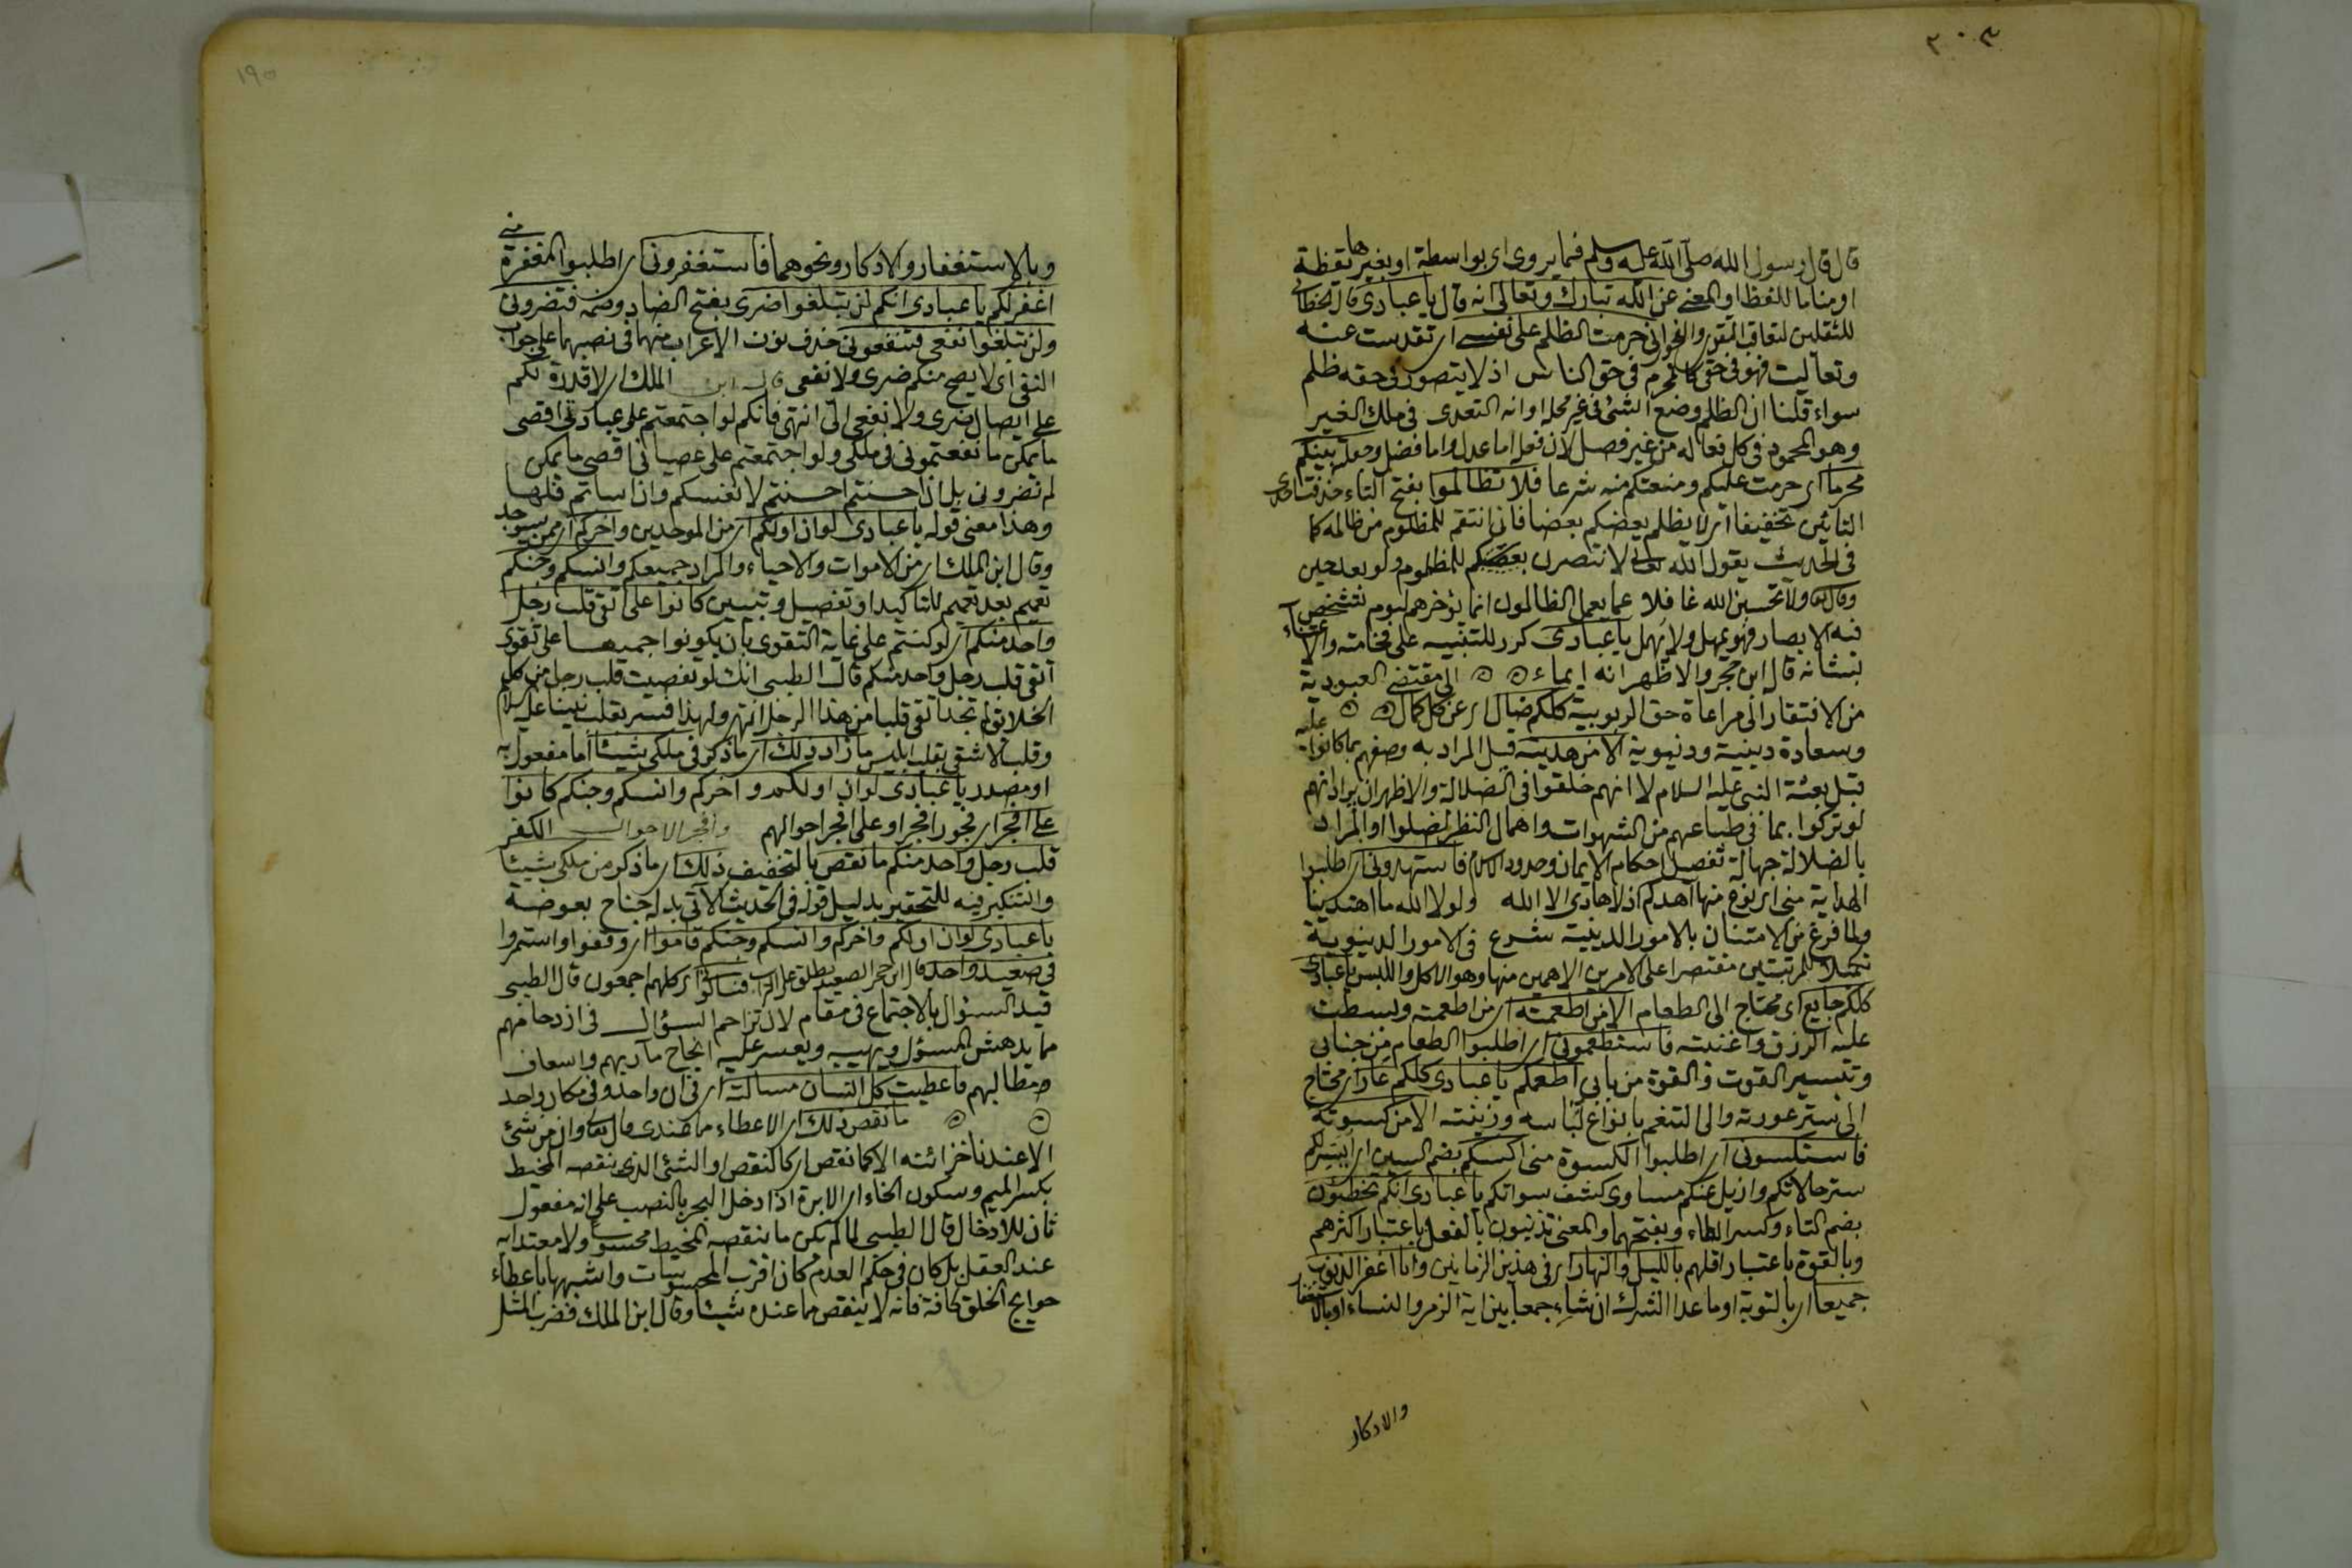 ٣٠٣
قال قال رسول الله صلى الله عليه وسلم فيما يروى اى بواسطة او بغيرها يقظة
او مناما للفظ او المعنى عن الله تبارك وتعالى انه قال يا عبادى قال الخطابى
للثقلين لتعاقب التقوى والفجور انى حرمت الظلم على نفسى اى تقدست عنه
وتعاليت فهو فى حقى كالمحرم فى حق الناس اذ لا يتصور فى حقه ظلم
سواء قلنا ان الظلم وضع الشئ فى غير محله او انه التعدى فى ملك الغير
وهو المحمود فى كل فعاله من غير فصل لان فعله اما عدل واما فضل وجعلته بينكم
محرما اى حرمت عليكم ومنعتكم منه شرعا فلا تظالموا بفتح التاء حذفت احدى
التائين تخفيفا اى لا يظلم بعضكم بعضا فانى انتقم للمظلوم من ظالمه كما
فى الحديث يقول الله تعالى لانتصرن للمظلوم ولو بعد حين
وقال تعالى ولا تحسبن الله غافلا عما يعمل الظالمون انما يؤخرهم ليوم تشخص
فيه الابصار فهو يمهل ولا يهمل يا عبادى كرر للتنبيه على فخامته والاعتناء
بشانه قاله ابن حجر والاظهر انه ايماء الى مقتضى العبودية
من الافتقار الى مراعاة حق الربوبية كلكم ضال اى عن كل كمال
وسعادة دينية ودنيوية الا من هديته قيل المراد به وصفهم بما كانوا عليه
قبل بعثة النبى عليه السلام لا انهم خلقوا فى الضلالة والاظهر ان يراد انهم
لو تركوا بما فى طباعهم من الشهوات واهمال النظر لضلوا او المراد
بالضلالة جهالة تفصيل احكام الايمان وحدود الاسلام فاستهدونى اى اطلبوا
الهداية منى اى بنوع منها اهدكم اذ لا هادى الا الله ولولا الله ما اهتدينا
ولما فرغ من الامتنان بالامور الدينية شرع فى الامور الدينوية
تكميلا للمرتبتين مقتصرا على الامرين الاهمين منها وهو الاكل واللبس يا عبادى
كلكم جايع اى محتاج الى الطعام الا من اطعمته اى من اطعمته وبسطت
عليه الرزق واغنيته فاستطعمونى اى اطلبوا الطعام من جنابى
وتيسير القوت والقوة من بابى اطعمكم يا عبادى كلكم عار اى محتاج
الى ستر عورته والى التنعم بانواع لباسه وزينته الا من كسوته
فاستكسونى اى اطلبوا الكسوة منى اكسكم بضم السين اى ايسر لكم
ستر حالاتكم وازيل عنكم مساوى كشف سواتكم يا عبادى انكم تخطئون
بضم التاء وكسر الطاء وبفتحهما والمعنى تذنبون بالفعل باعتبار اكثرهم
وبالقوة باعتبار اقلهم بالليل والنهار اى فى هذين الزمانين وانا اغفر الذنوب
جميعا اى بالتوبة او ما عدا الشرك ان شاء جمعا بين اية الزمر والنساء او بالاستغفار
والاذكار
١٩٥
وبالاستغفار والاذكار ونحوهما فاستغفرونى اى اطلبوا المغفرة منى
اغفر لكم يا عبادى انكم لن تبلغوا ضرى بفتح الضاد وضمه فتضرونى
ولن تبلغوا نفعى فتنفعونى حذف نون الاعراب منهما فى نصبهما على جواب
النفى اى لا يصح منكم ضرى ولا نفعى قال ابن الملك اى لا قدرة لكم
على ايصال ضرى ولا نفعى الى انتهى فانكم لو اجتمعتم على عبادتى اقصى
ما يمكن ما نفعتمونى فى ملكى ولو اجتمعتم على عصيانى اقصى ما يمكن
لم تضرونى بل ان احسنتم احسنتم لانفسكم وان اساتم فلها
وهذا معنى قوله يا عبادى لو ان اولكم اى من الموجدين واخركم اى ممن سيوجد
وقال ابن الملك اى من الاموات والاحياء والمراد جميعكم وانسكم وجنكم
تعميم بعد تعميم للتاكيد او تفصيل وتبيين كانوا على اتقى قلب رجل
واحد منكم اى لو كنتم على غاية التقوى بان يكونوا جميعا على تقوى
اتقى قلب رجل واحد منكم قال الطيبى انك لو تفصيت قلب رجل من كل
الخلايق لم تجد اتقى قلبا من هذا الرجل انتهى ولهذا فسر بقلب نبينا عليه السلام
وقلب الاشقى بقلب ابليس ما زاد ذلك اى ما ذكر فى ملكى شيئا اما مفعول به
او مصدر يا عبادى لو ان اولكم واخركم وانسكم وجنكم كانوا
على افجر اى فجور افجر او على افجر احوالهم وافجر الاحوال الكفر
قلب رجل واحد منكم ما نقص بالتخفيف ذلك اى ما ذكر من ملكى شيئا
والتنكير فيه للتحقير بدليل قوله فى الحديث الآتى بدله جناح بعوضة
يا عبادى لو ان اولكم واخركم وانسكم وجنكم قاموا اى وقفوا واستمروا
فى صعيد واحد قال ابن حجر الصعيد يطلق على التراب فسألوا اى كلهم اجمعون قال الطيبى
قيد السؤال بالاجتماع فى مقام لان تزاحم السؤال فى ازدحامهم
مما يدهش المسؤل ويهيبه ويعسر عليه انجاح مآربهم واسعاف
مطالبهم فاعطيت كل انسان مسالته اى فى ان واحد وفى مكان واحد
ما نقص ذلك اى الاعطاء مما عندى قال تعالى وان من شئ
الا عندنا خزائنه الا كما نقص اى كالنقص او الشئ الذى نقصه المخيط
بكسر الميم وسكون الخاء اى الابرة اذا دخل البحر بالنصب على انه مفعول
ثان للادخال قال الطيبى لما لم يكن ما ينقصه المخيط محسوسا ولا معتدا به
عند العقل بل كان فى حكم العدم كان اقرب المحسوسات واشبهها باعطاء
حوايج الخلق كافة فانه لا ينقص مما عنده شيئا وقال ابن الملك فضرب المثل